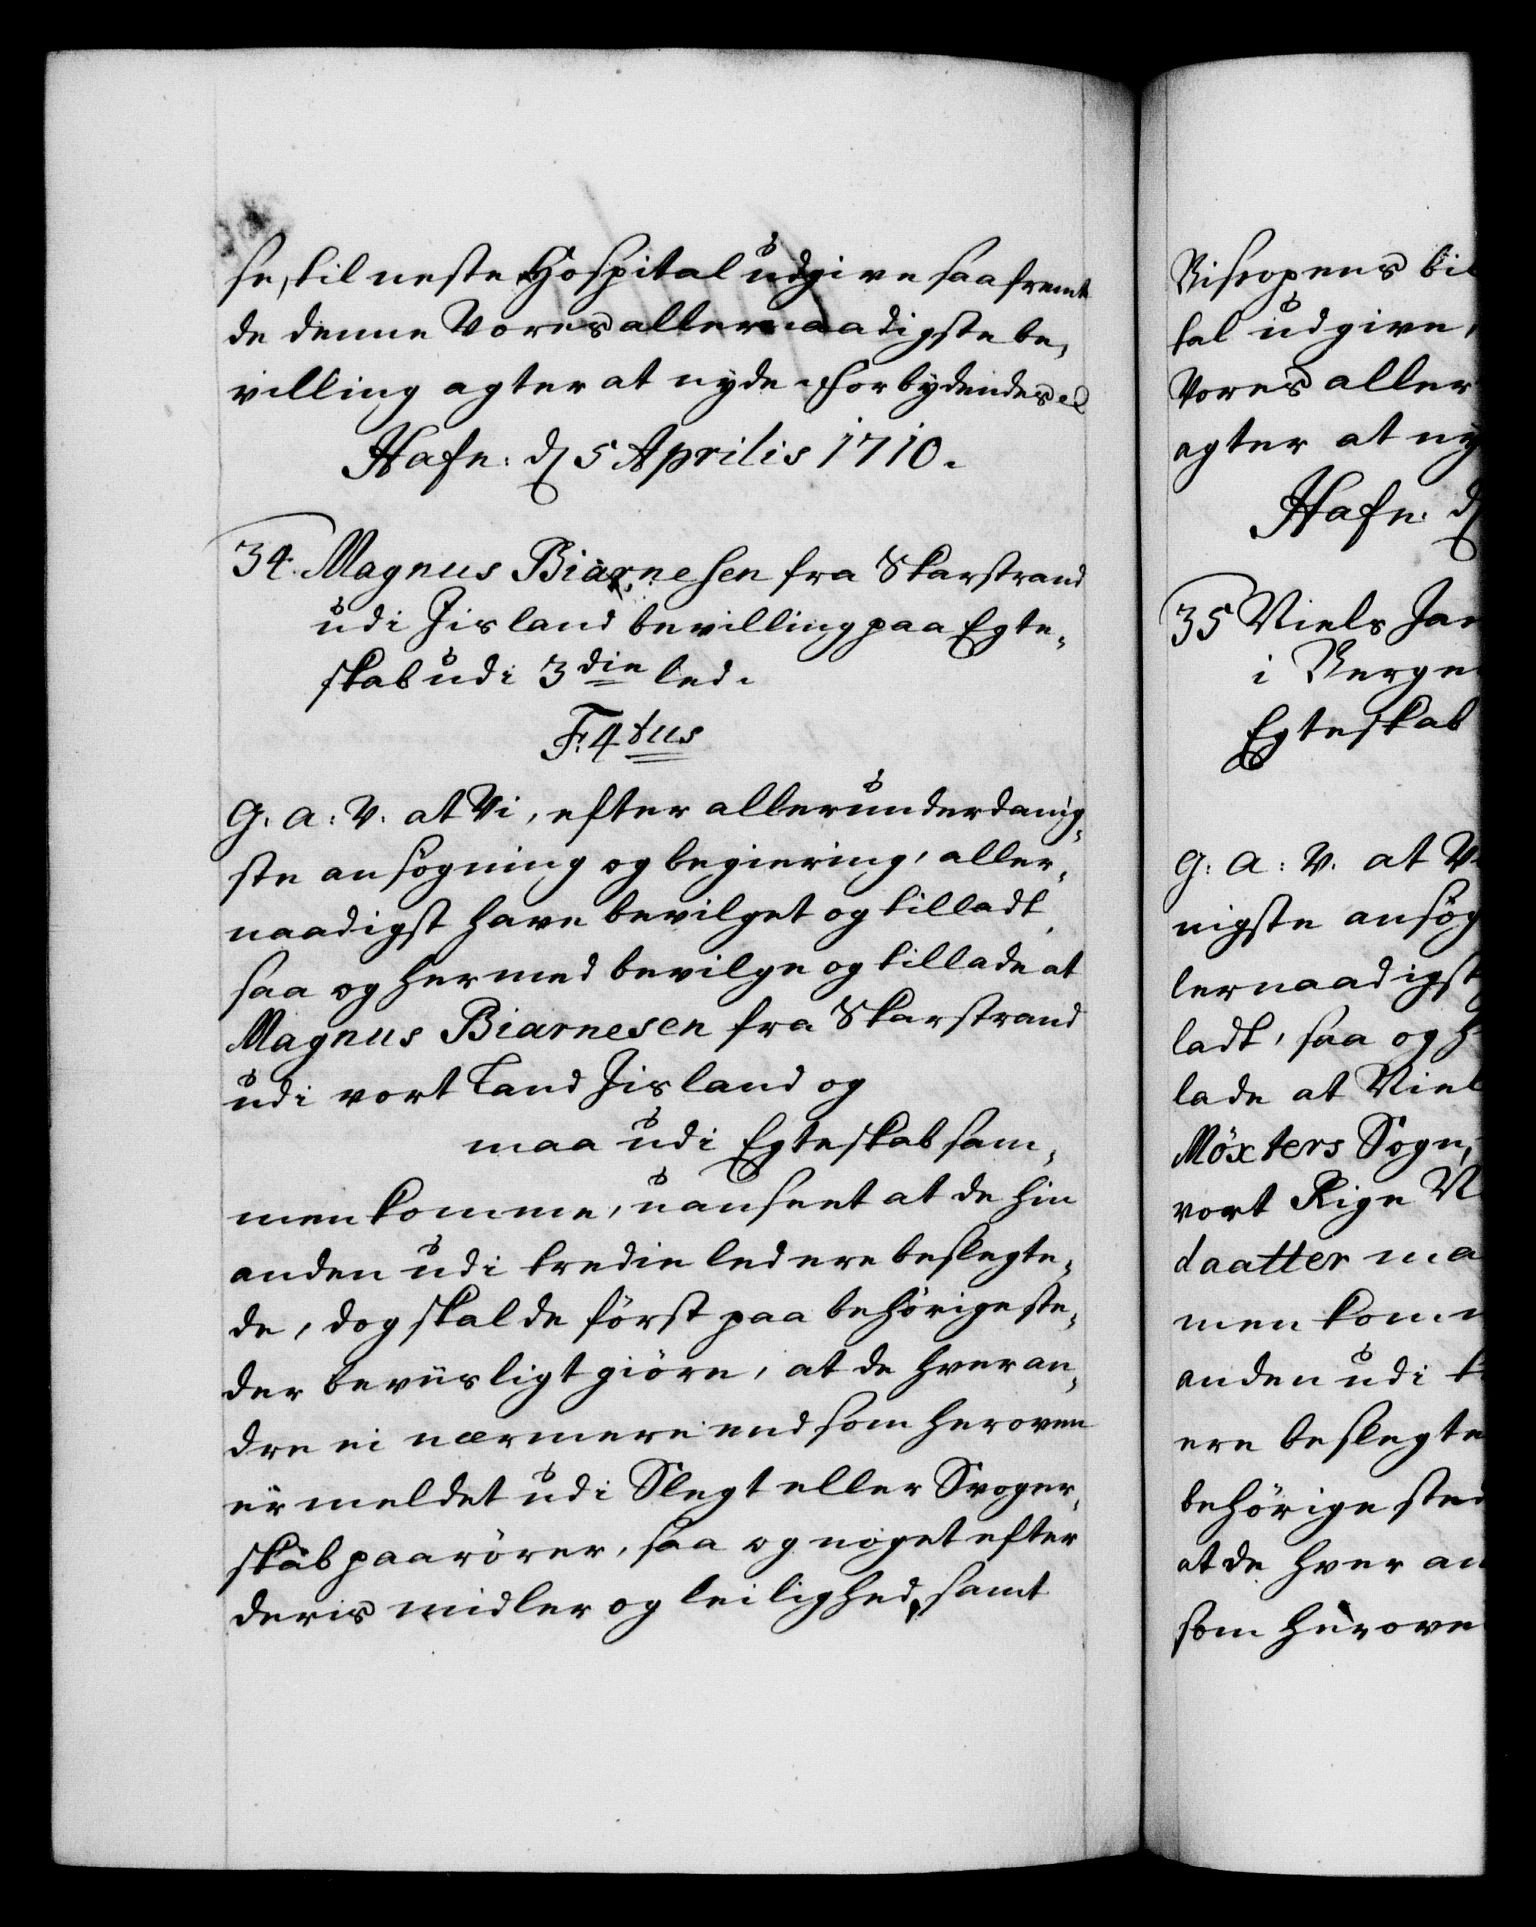 se, til neste Hospital udgive saafremt
de denne Vores allernaadigste be„
villing agter at nyde. Forbydendes
Hafn: d 5 Aprilis 1710.
34. Magnus Biarnesen fra Skarstrand
udi Jisland bevilling paa Egte„
skab udi 3die led.
F: 4tus
G. A: V. at Vi, efter allerunderdanig„
ste ansøgning og begiering, aller„
naadigst have bevilget og tilladt
saa og hermed bevilge og tillade at
Magnus Biarnesen fra Skarstrand
udi vort Land Jisland og
maa udi Egteskab sam„
menkomme, uanseet at de hin
anden udi tredie led ere beslegte„
de, dog skal de först paa behörige ste„
der beviisligt giöre, at de hveran„
dre ei nærmere end som heroven
er meldet udi Slegt eller Svoger„
skab paarörer, saa og noget efter
deris midler og leilighed, samt
Biscopens bil
tal udgive,
Vores aller
agter at ny
Hafn. d
35 Niels Jan
i Berge
Egteskab
G: A: V. at V
nigste ansög
lernaadigst
ladt, saa og h
lade at Niel
Möxters Sogn,
vort Rige N
daatter ma
men kom
anden udi t
ere beslegte
behörige sted
at de hver an
som herove